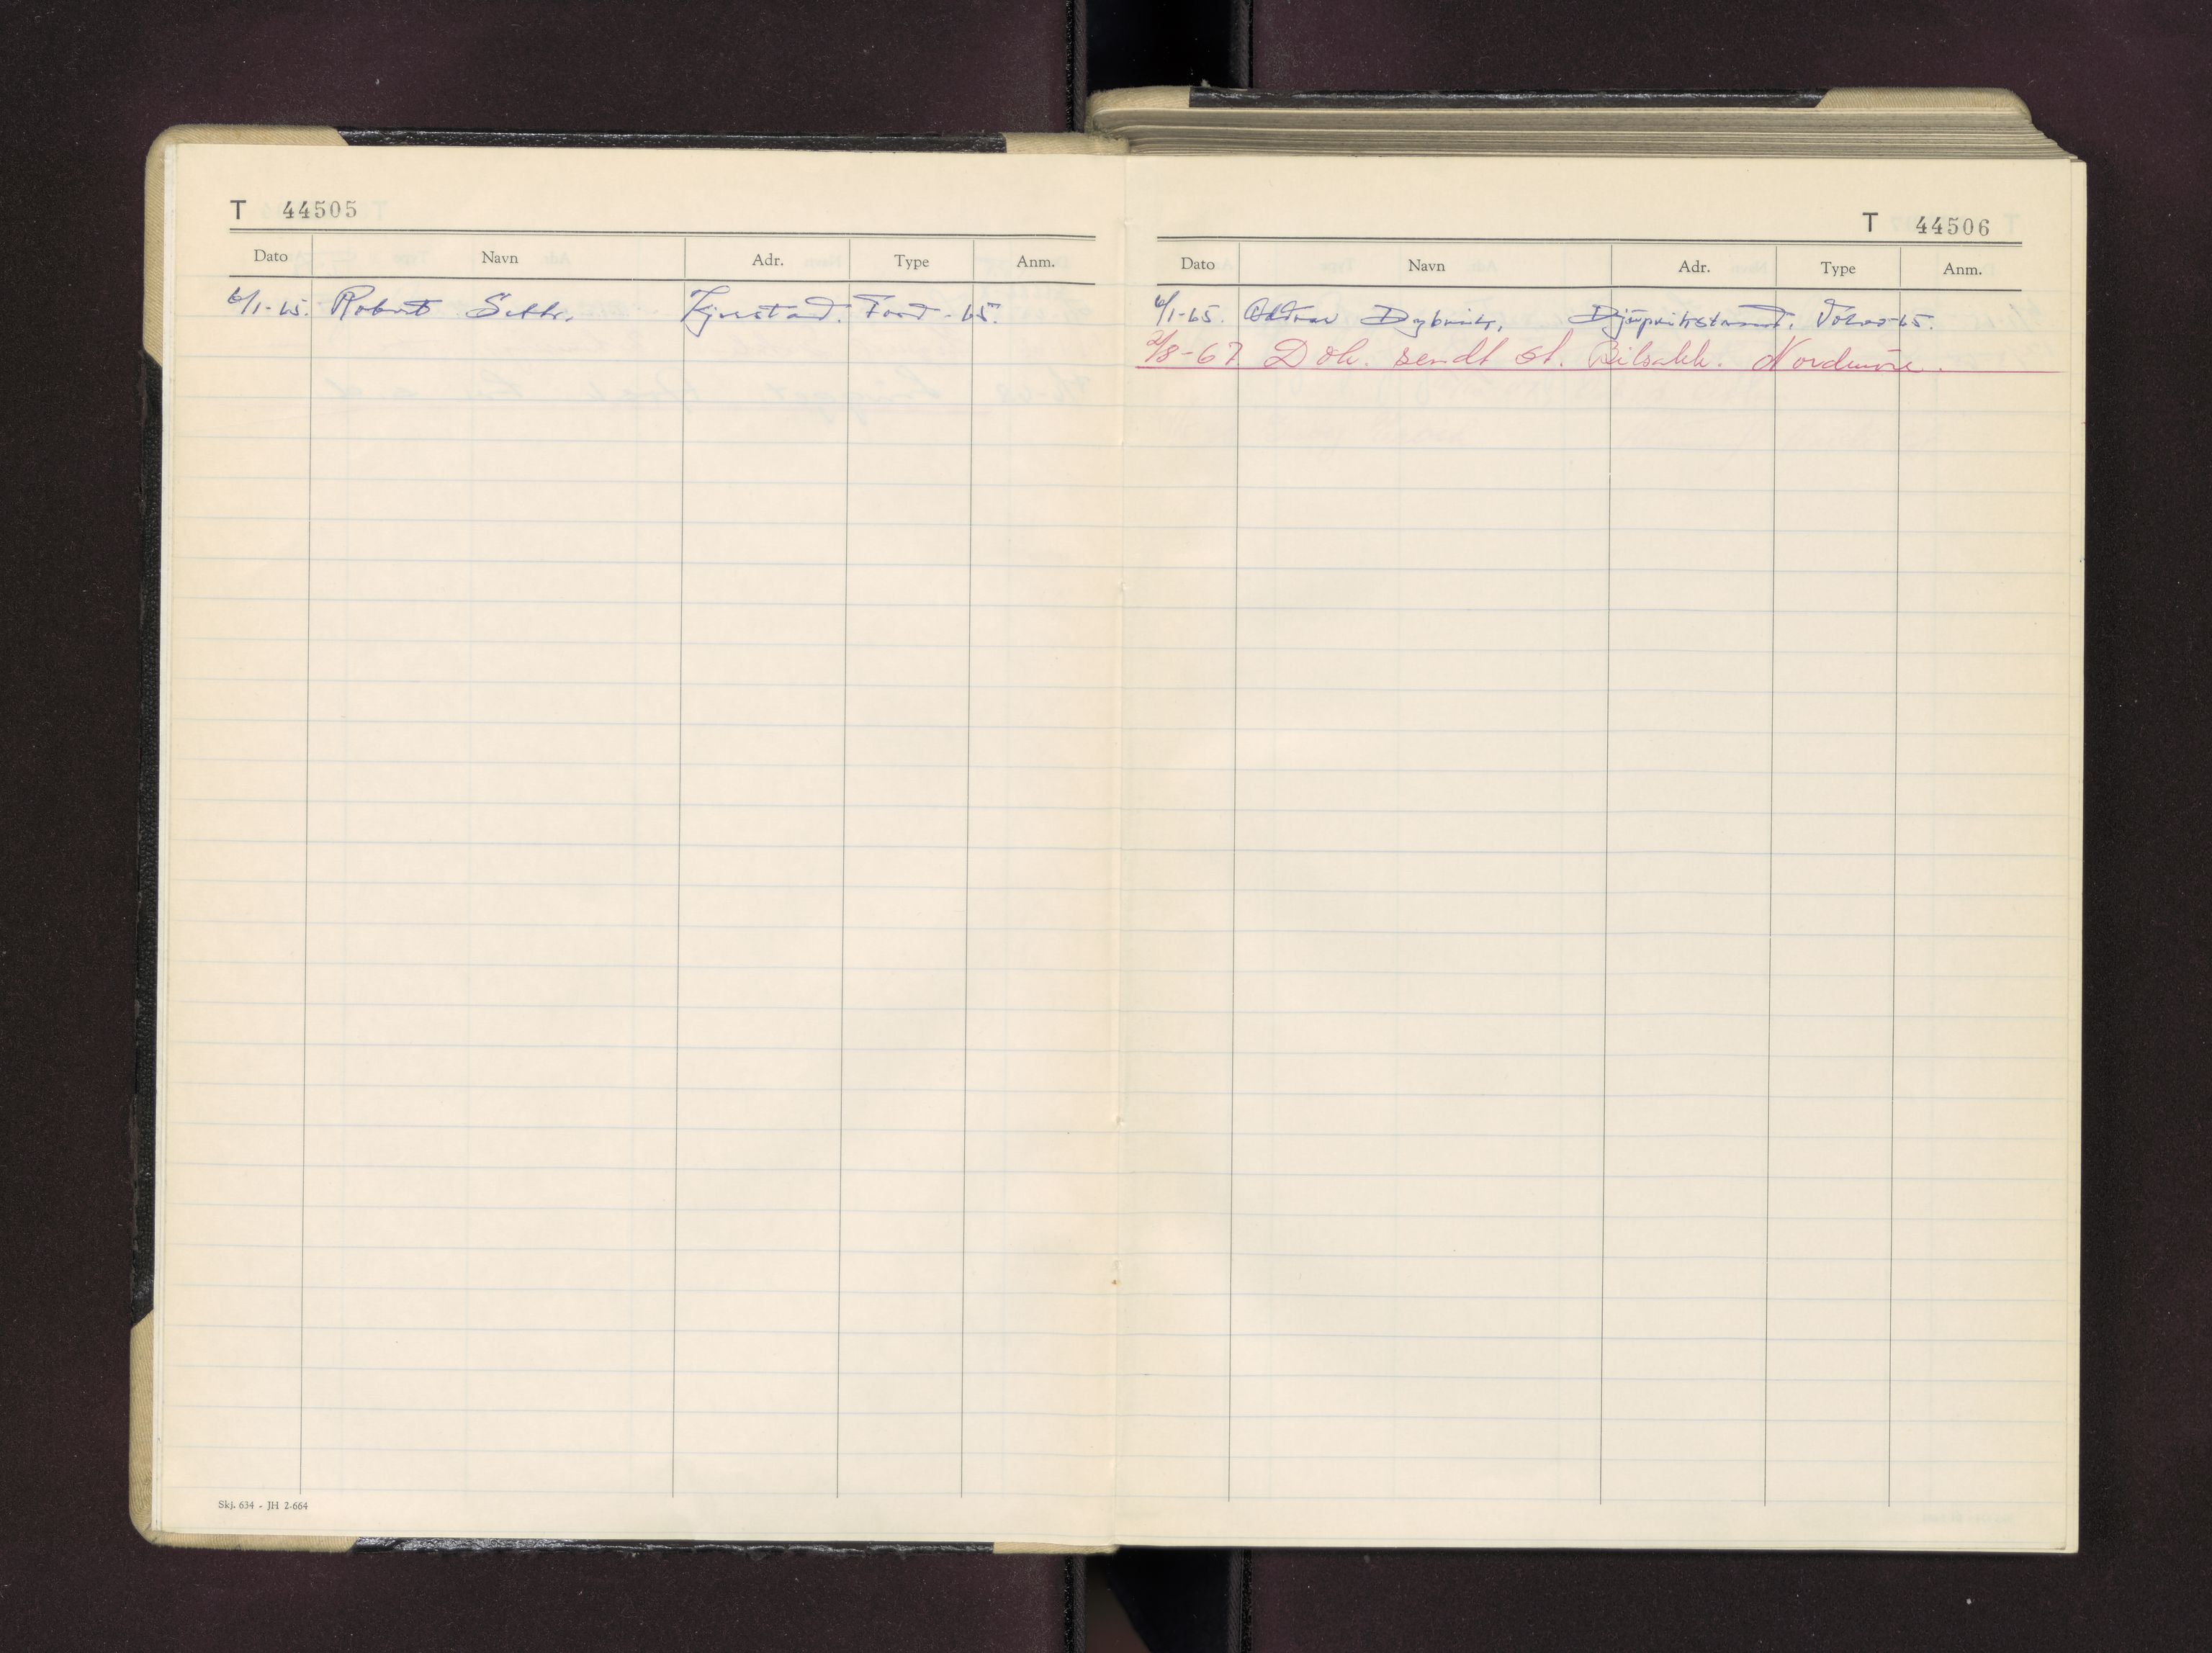 T 44505
Dato Navn Adr. Type Anm.
6/1-65. Robert Seth. Kjerstad. Ford - 65.
Skj. 634 - JH 2-664
T 44506
Dato Navn Adr. Type Anm.
6/1-65. Oddvar Dybvik, Djúpvikstrand. Volvo-65.
2/8-67 Dok. sendt st. Bilsakk. Nordmöre.